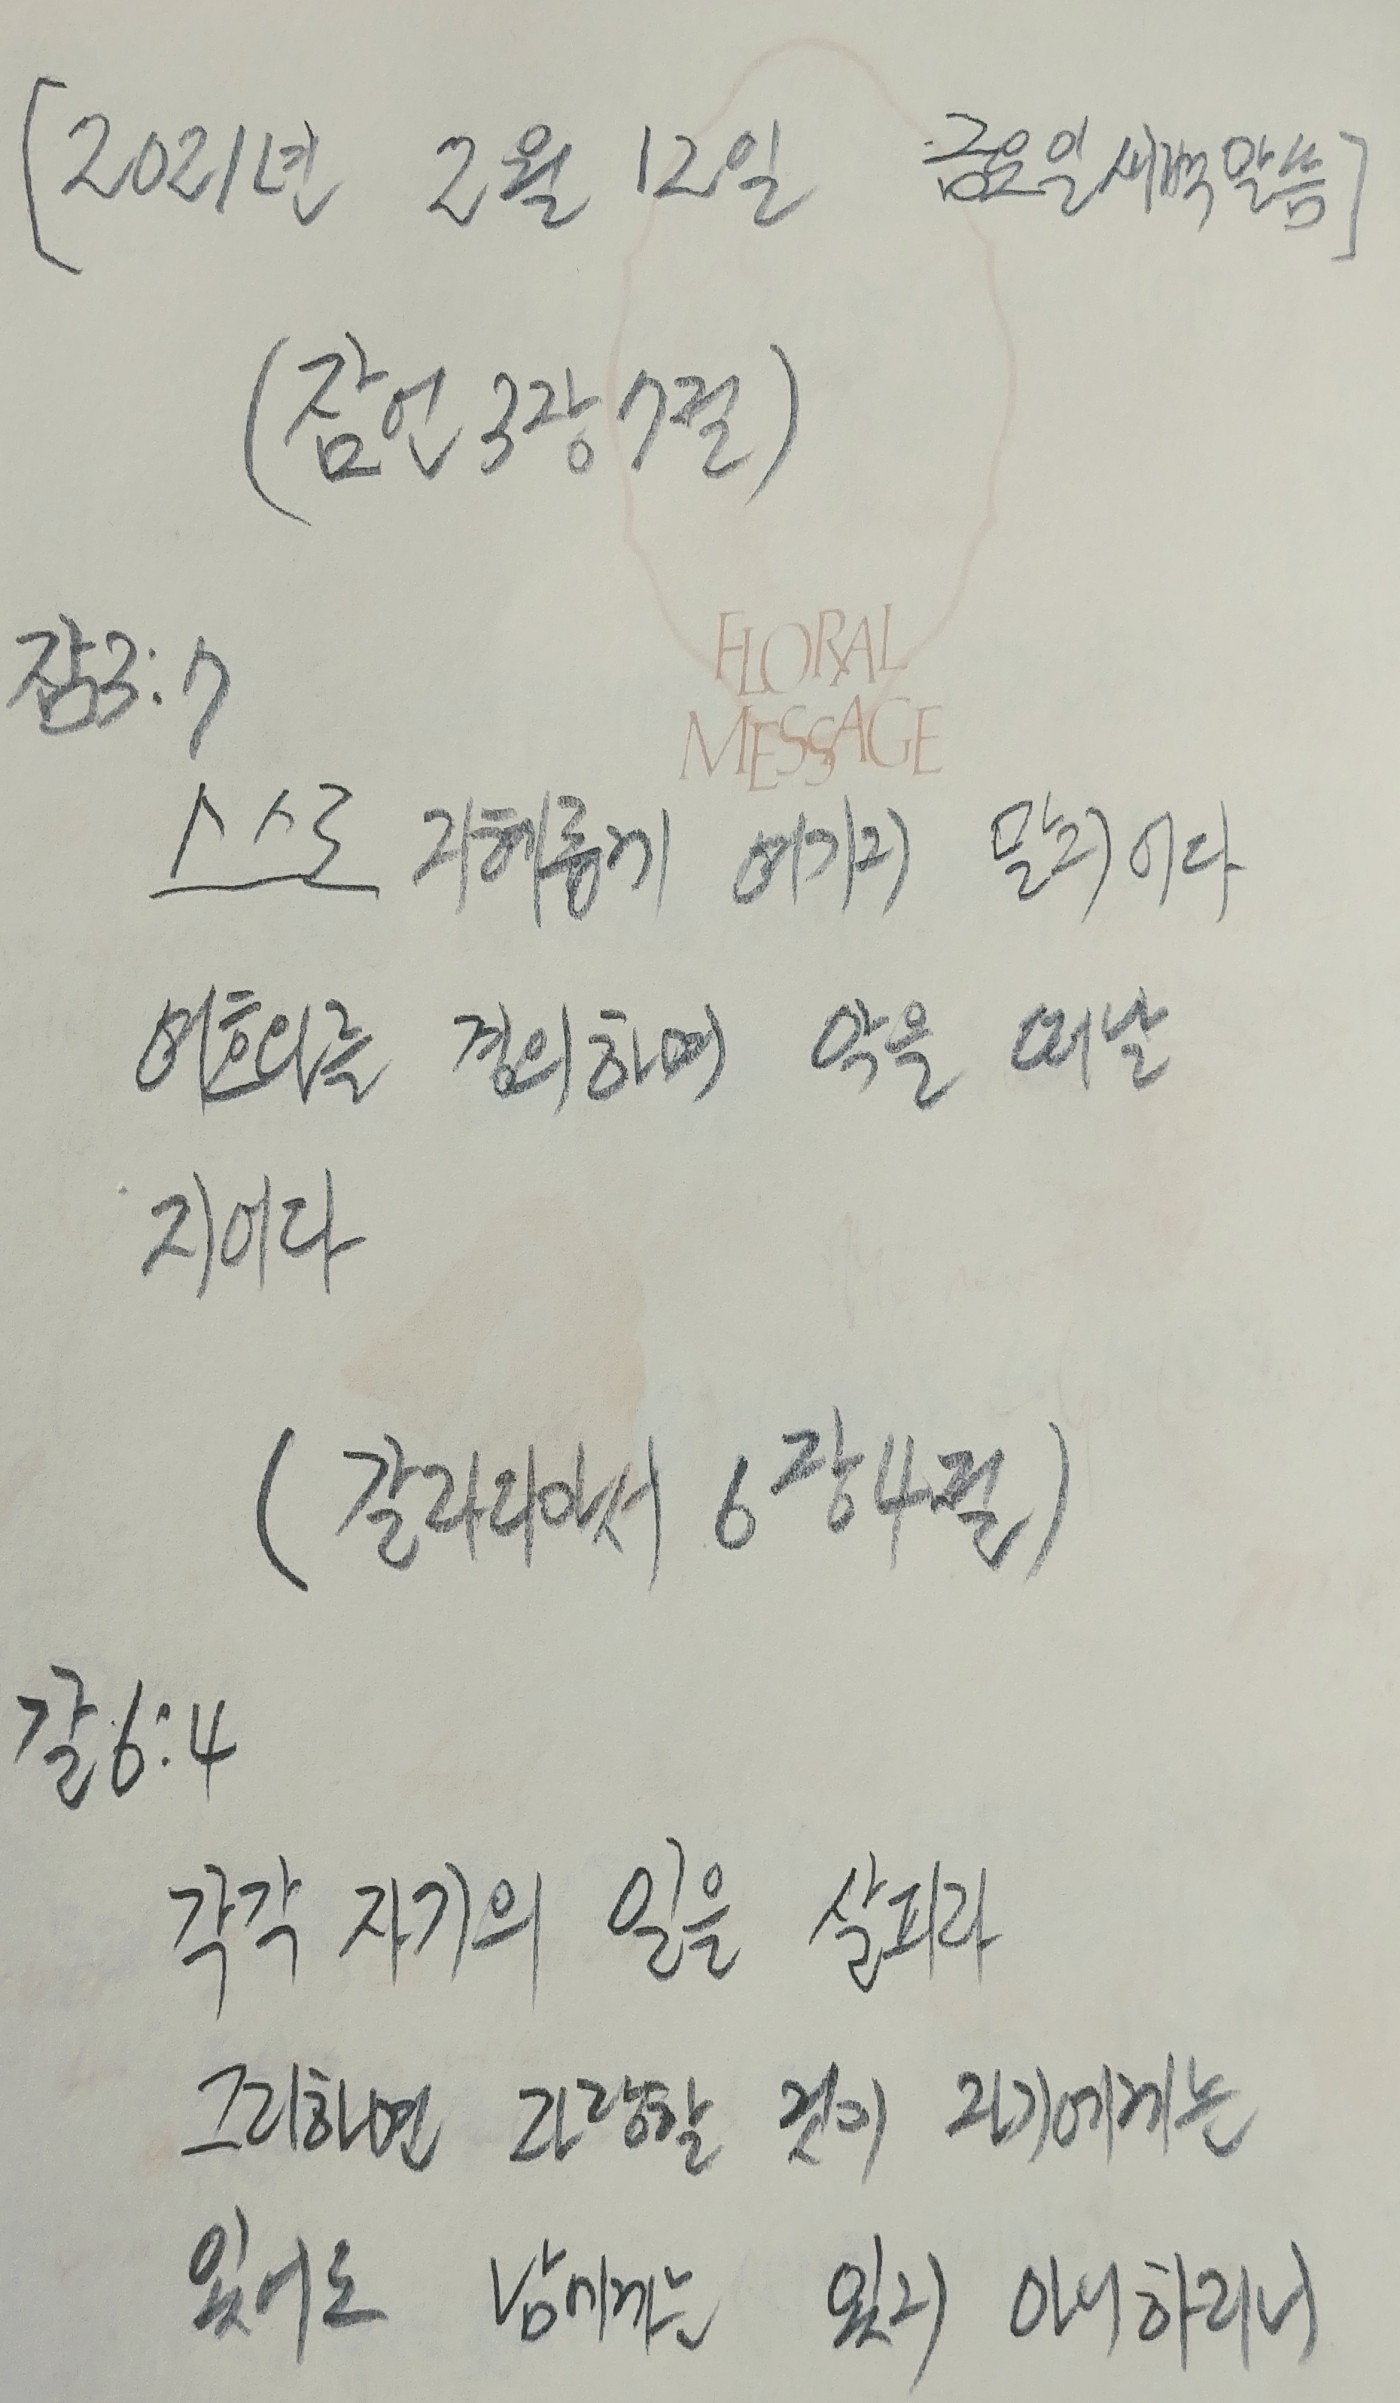 [2021년 2월 12일 금요일새벽말씀]
(잠언 3장 7절)
FLORAL
MESSAGE
잠3:7
스스로 지혜롭게 여기지 말지어다
여호와를 경외하며 악을 떠날
지어다
(갈라디아서 6장 4절)
갈6:4
각각 자기의 일을 살피라
그리하면 자랑할 것이 자기에게는
있어도 남에게는 있지 아니하리니